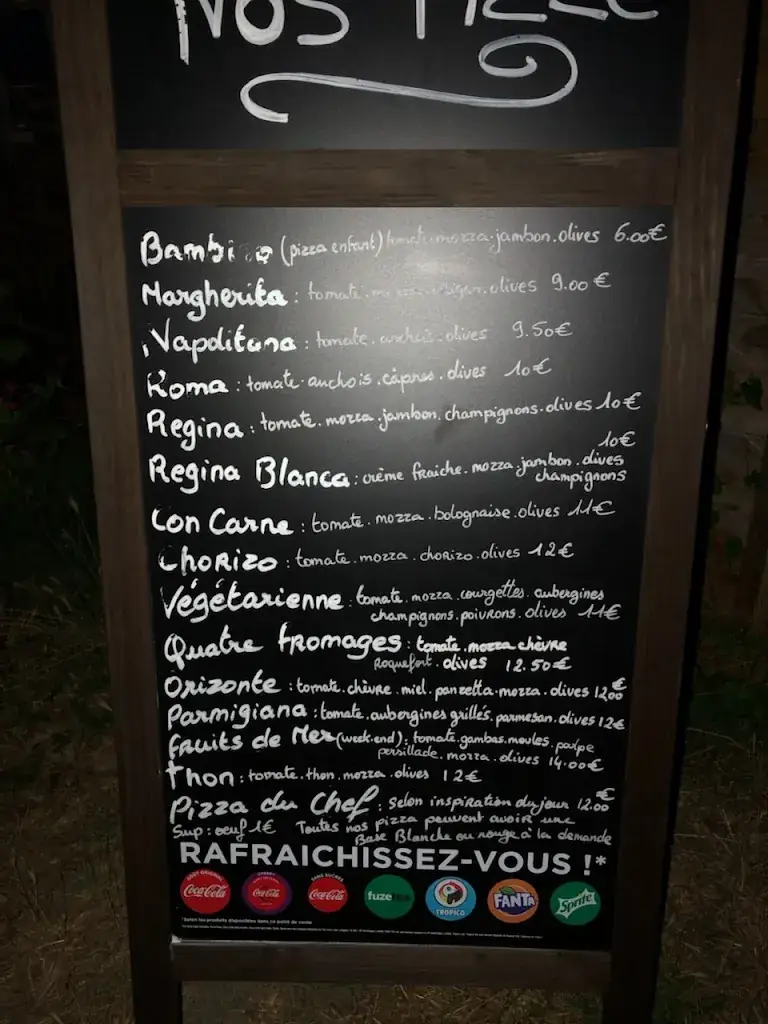 NOS PIZZ
Bambino (pizza enfant) tomate.mozza.jambon.olives 6.00€
Margherita : tomate. olives 9.00€
Napolitana : tomate.anchois.olives 9.50€
Roma : tomate.anchois.câpres.olives 10€
Regina : tomate.mozza.jambon.champignons.olives 10€
10€
Regina Blanca : crème fraiche.mozza.jambon.olives
champignons
Con Carne : tomate.mozza.bolognaise.olives 11€
Chorizo : tomate.mozza.chorizo.olives 12€
Végétarienne : tomate.mozza.courgettes.aubergines
champignons.poivrons.olives 11€
Quatre fromages : tomate.mozza chèvre
roquefort.olives 12.50€
Orizonte : tomate.chèvre.miel.panzetta.mozza.olives 12.00€
Parmigiana : tomate.aubergines grillés.parmesan.olives 12€
Fruits de Mer (week.end) : tomate.gambas.moules.poulpe
persillade.mozza.olives 14.00€
Thon : tomate.thon.mozza.olives 12€
Pizza du Chef : selon inspiration du jour 12.00€
Sup : oeuf 1€ Toutes nos pizza peuvent avoir une
Base Blanche ou rouge à la demande
RAFRAICHISSEZ-VOUS !*
GOÛT ORIGINAL CHERRY SANS SUCRES
Coca-Cola Coca-Cola Coca-Cola fuzetea TROPICO FANTA Sprite
*Selon les produits disponibles dans ce point de vente